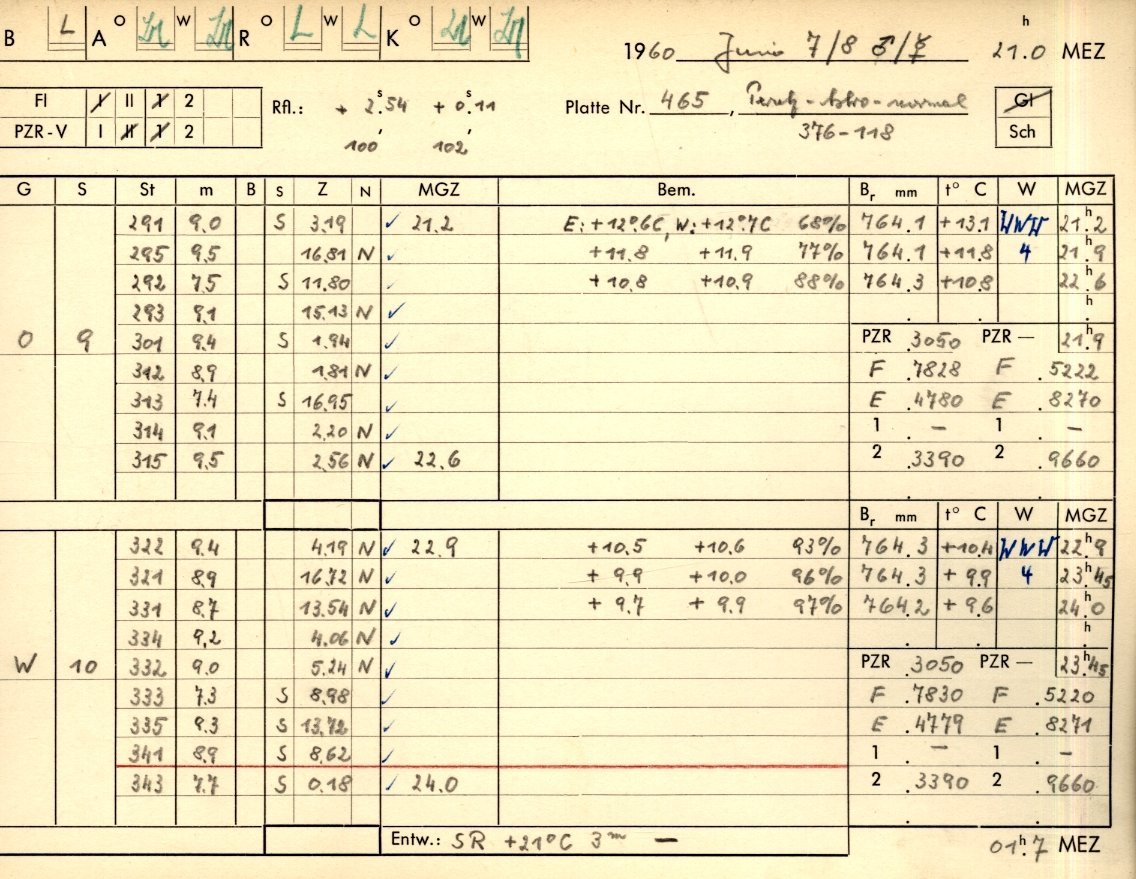 B L A O Ln W Ln R O L W L K O Ln W Ln
1960 Junio 7/8 ♂/☿ 21.0 h MEZ
FI I II 1 2
PZR-V I II 1 2
Rfl.: + 2.ˢ54 + 0.ˢ11
100′ 102′
Platte Nr. 465, Perutz-Astro-normal
376-118
Gl
Sch
G S St m B S Z N MGZ Bem. Bᵣ mm t° C W MGZ
291 9.0 S 3.19 ✓ 21.2 E: +12°.6C, W: +12°.7C 68% 764.1 +13.1 WWW 21ʰ.2
295 9.5 16.81 N ✓ +11.8 +11.9 77% 764.1 +11.8 4 21ʰ.9
292 7.5 S 11.80 ✓ +10.8 +10.9 88% 764.3 +10.8 22ʰ.6
293 9.1 15.13 N ✓ h
O 9 301 9.4 S 1.94 ✓ PZR .3050 PZR — 21ʰ.9
312 8.9 1.81 N ✓ F .7828 F .5222
313 7.4 S 16.95 ✓ E .4780 E .8270
314 9.1 2.20 N ✓ 1 . – 1 . –
315 9.5 2.56 N ✓ 22.6 2 .3390 2 .9660
Bᵣ mm t° C W MGZ
322 9.4 4.19 N ✓ 22.9 +10.5 +10.6 93% 764.3 +10.4 WWW 22ʰ.9
321 8.9 16.72 N ✓ + 9.9 +10.0 96% 764.3 + 9.9 4 23ʰ.45
331 8.7 13.54 N ✓ + 9.7 + 9.9 97% 764.2 + 9.6 24ʰ.0
334 9.2 4.06 N ✓ h
W 10 332 9.0 5.24 N ✓ PZR .3050 PZR — 23ʰ.45
333 7.3 S 8.98 ✓ F .7830 F .5220
335 9.3 S 13.72 ✓ E .4779 E .8271
341 8.9 S 8.62 ✓ 1 . – 1 . –
343 7.7 S 0.18 ✓ 24.0 2 .3390 2 .9660
Entw.: SR +21°C 3ᵐ — 01ʰ.7 MEZ